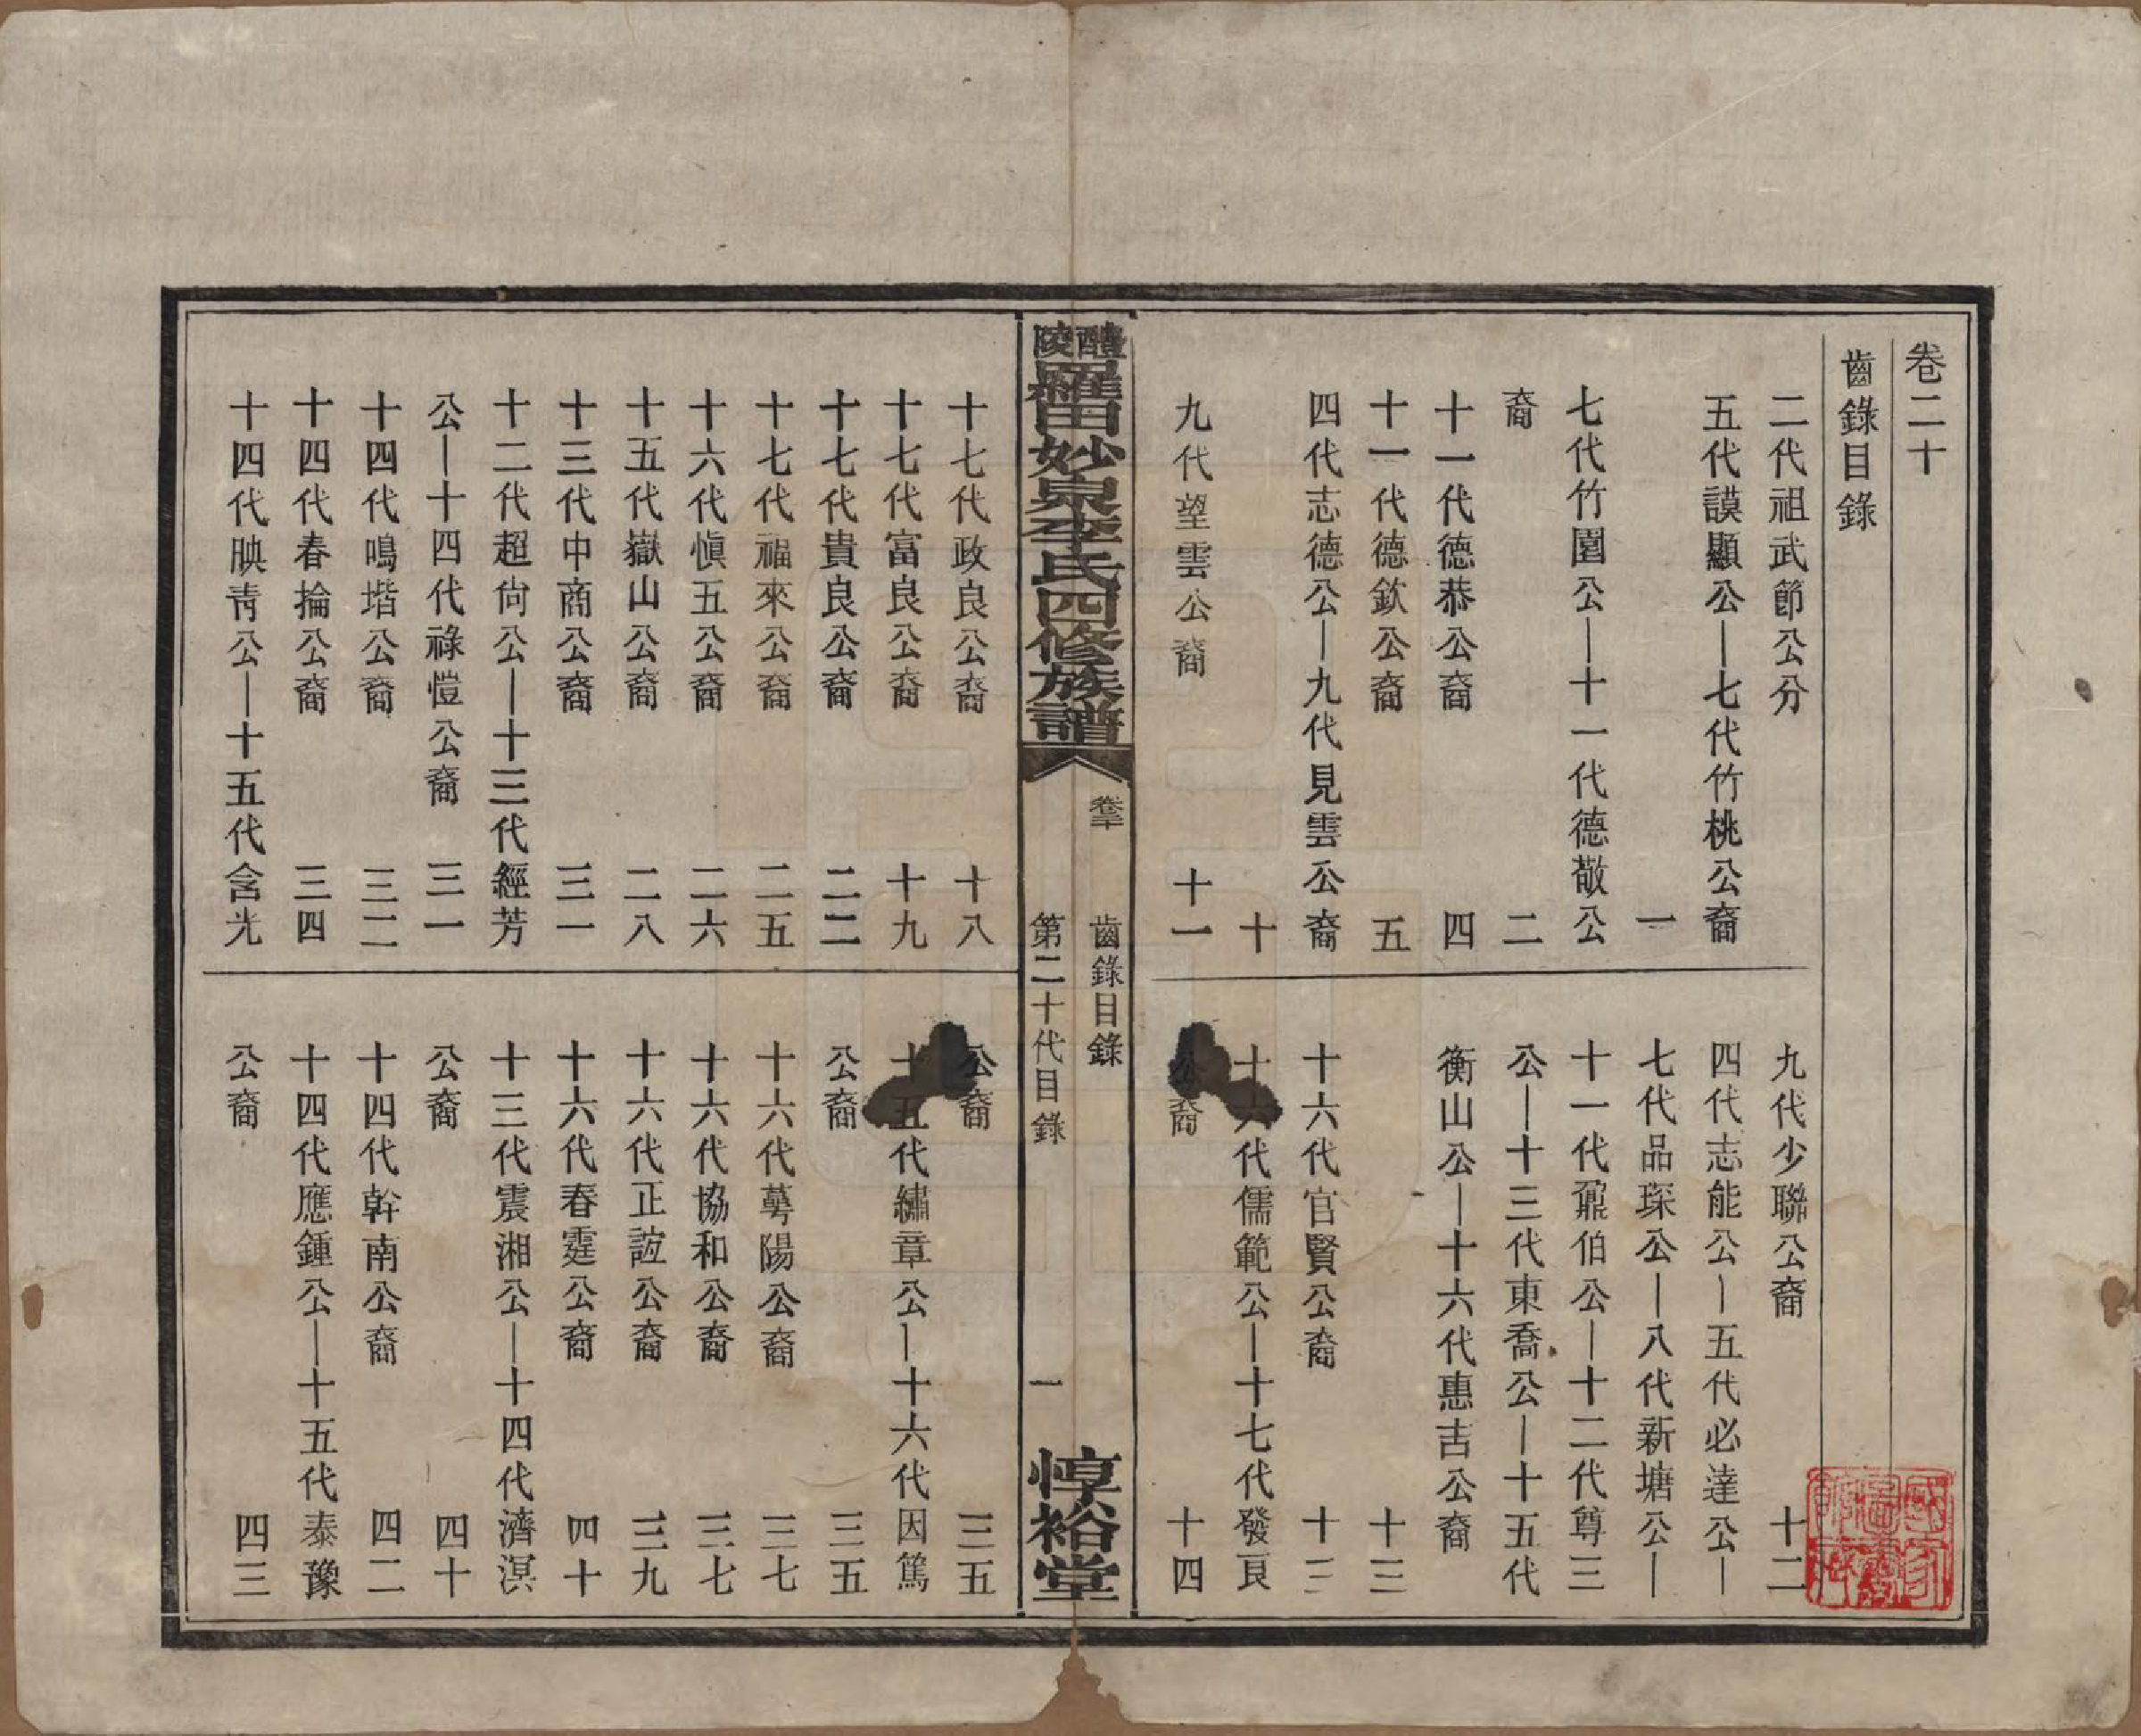 卷二十
齒錄目錄
二代祖武節公分
五代謨顯公—七代竹桃公裔
一
七代竹園公—十一代德敬公
裔 二
十一代德恭公裔 四
十一代德欽公裔 五
四代志德公—九代見雲公裔
十
九代望雲公裔 十一
九代少聯公裔 十二
四代志能公—五代必達公—
七代品琛公—八代新塘公—
十一代鼐伯公—十二代尊三
公—十三代東喬公—十五代
衡山公—十六代惠吉公裔
十三
十六代官賢公裔 十三
十六代儒範公—十七代發良
公裔 十四
醴陵羅田妙泉李氏四修族譜
卷二十 齒錄目錄
第二十代目錄 一
惇裕堂
十七代政良公裔 十八
十七代富良公裔 十九
十七代貴良公裔 二二
十七代福來公裔 二五
十六代愼五公裔 二六
十五代嶽山公裔 二八
十三代中商公裔 三一
十二代超尙公—十三代經芳
公—十四代祿愷公裔 三一
十四代鳴堦公裔 三二
十四代春掄公裔 三四
十四代映靑公—十五代含光
公裔 三五
十五代繡章公—十六代因篤
公裔 三五
十六代萼陽公裔 三七
十六代協和公裔 三七
十六代正誼公裔 三九
十六代春霆公裔 四十
十三代震湘公—十四代濟溟
公裔 四十
十四代幹南公裔 四二
十四代應鍾公—十五代泰豫
公裔 四三